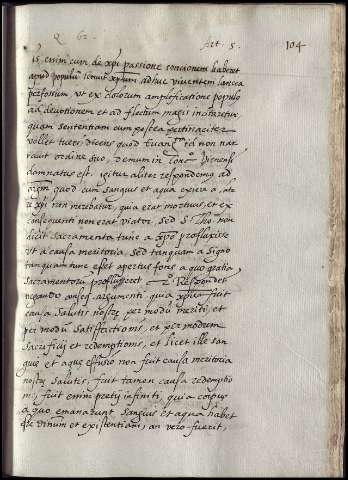 Q 62. Art. 5. 104
is enim cum de xpi passione concionem haberet
apud populũ tenuit xptum adhuc viventem lancea
perfossum ut ex dolorum amplificatione populo
ad devotionem et ad fletum magis incitaretur
quam sententiam cum postea pertinaciter
vellet tueri, dicens quod Euang. id non nar
ravit ordine suo, demum in Conc. Vienensi
domnatus est. igitur aliter respondemq ad
argm quod cum sanguis et aqua exivit a
xpi non merebatur, quia erat mortuus, et ex
consequenti non erat viator. Sed S. Tho. non
dicit sacramenta tunc a xpo profluxisse
ut a causa meritoria, sed tanquam a signo
tanquam tunc esset apertus fons a quo gratia
sacramentorũ proflueret. 2º Respondet
negando anteq argumenti, quia xptus fuit
causa salutis nostre per modũ meriti, et
per modũ satisfactionis, et per modum
sacrificij et redemptionis, et licet ille san
guis et aque effusio non fuit causa meritoria
nostre salutis, fuit tamen causa redemptio
nis, fuit enim pretij infiniti, quia corpus
a quo emanabunt sanguis et aqua habet
divinum et existentiam, an vero fuerit,